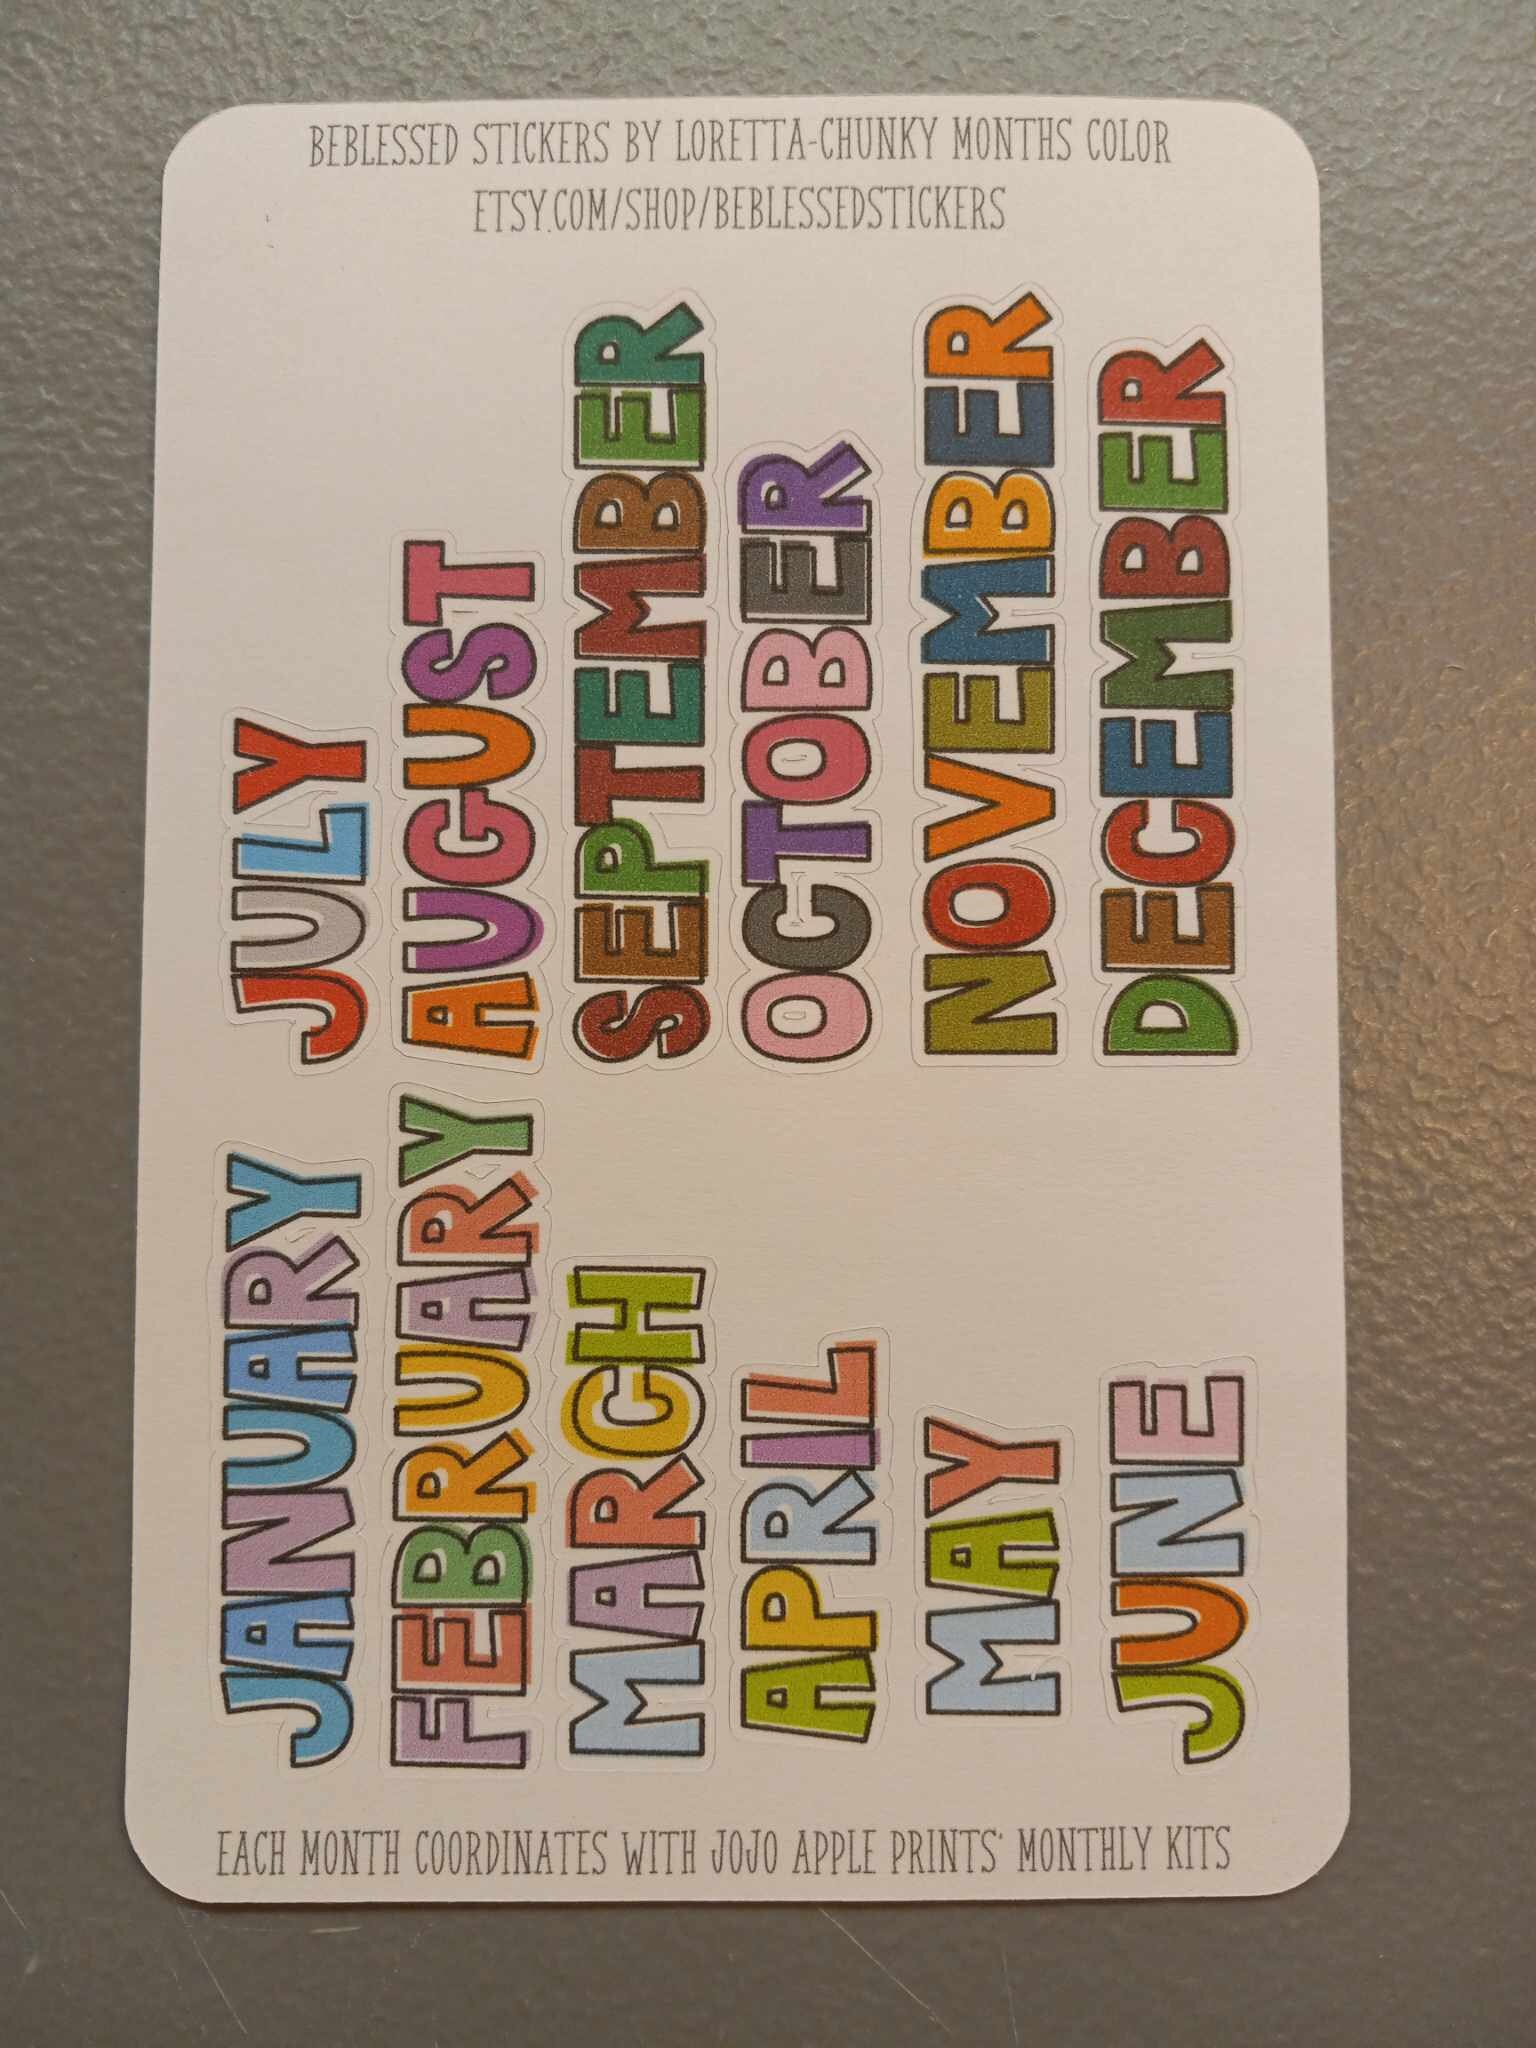 BEBLESSED STICKERS BY LORETTA-CHUNKY MONTHS COLOR
ETSY.COM/SHOP/BEBLESSEDSTICKERS
JANUARY
FEBRUARY
MARCH
APRIL
MAY
JUNE
JULY
AUGUST
SEPTEMBER
OCTOBER
NOVEMBER
DECEMBER
EACH MONTH COORDINATES WITH JOJO APPLE PRINTS' MONTHLY KITS